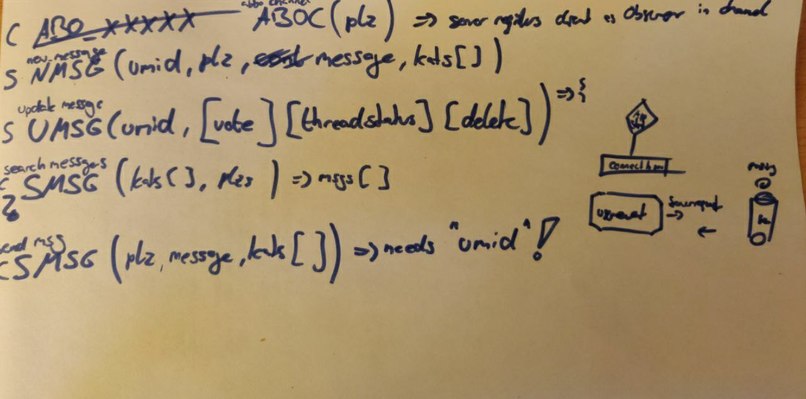 abbo channel
C ABO XXXXX ABOC (plz) => server registers client as Observer in channel
new message
S NMSG (umid, plz, message, kats[])
update message
S UMSG (umid, [vote] [threadstatus] [delete]) => {
search messages
C SMSG (kats[], plzs) => msgs[]
send msg
C SMSG (plz, message, kats[]) => needs "umid"!